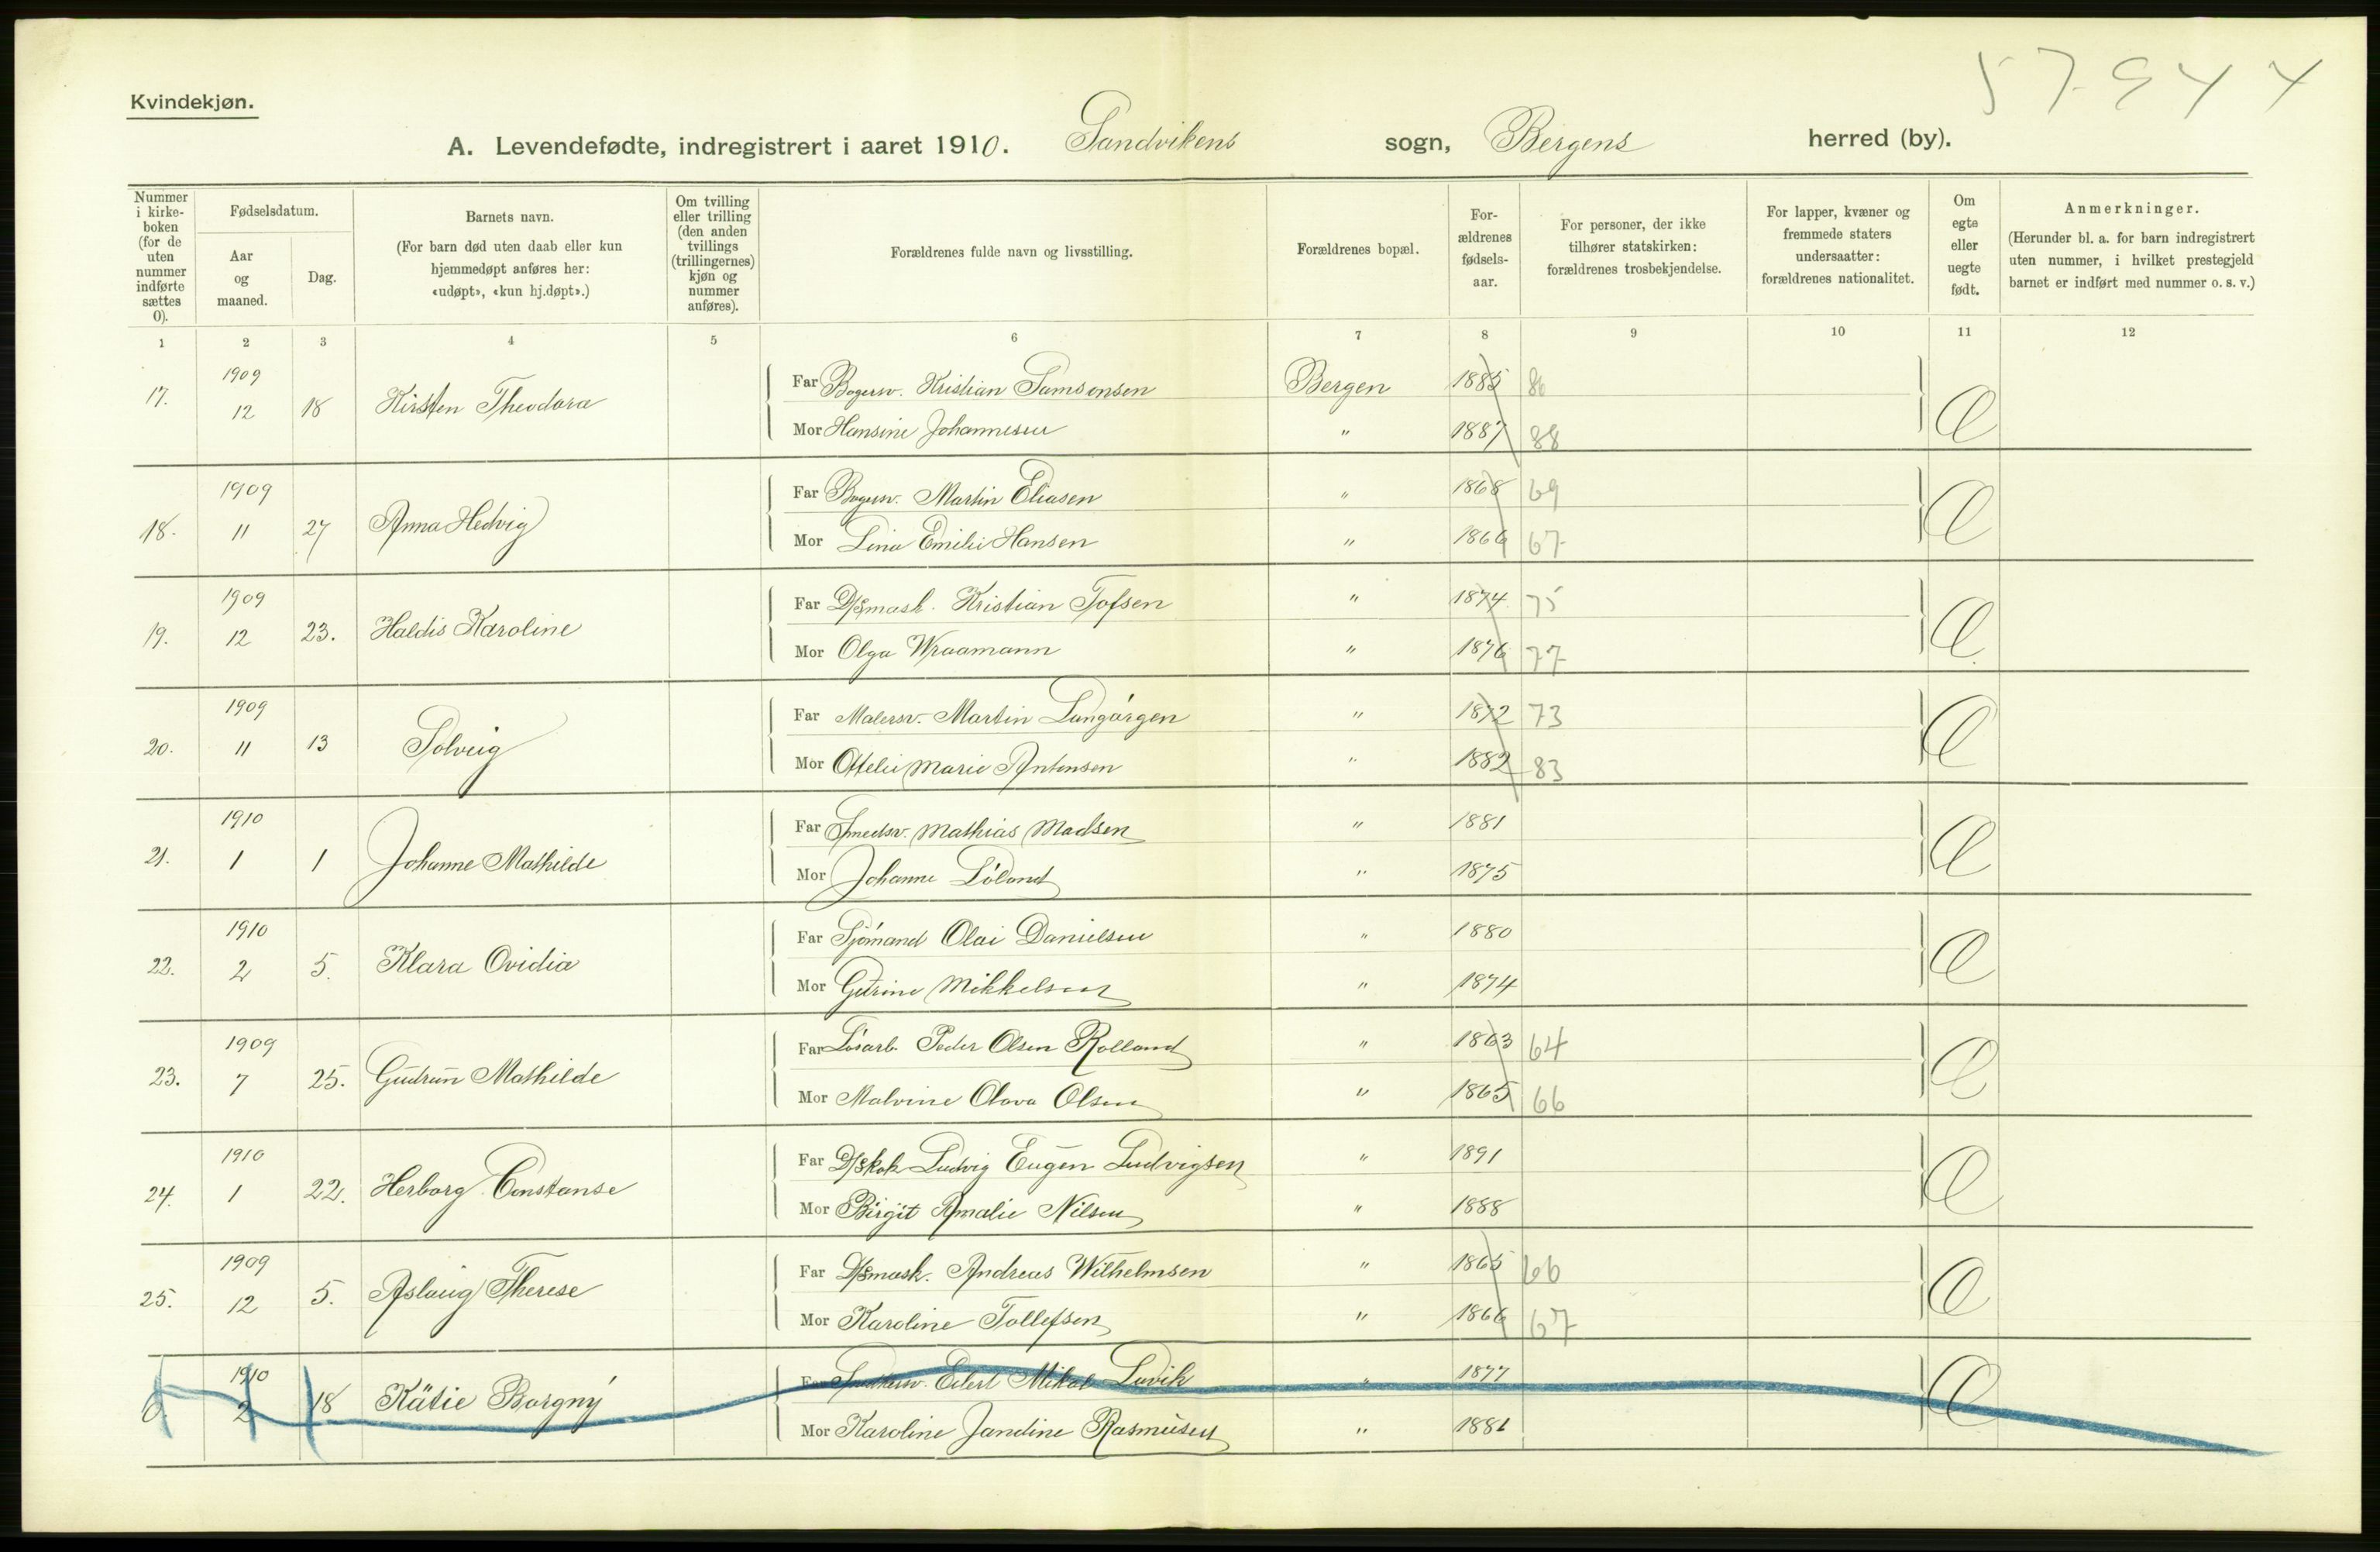 57944
Kvindekjøn.
A. Levendefødte, indregistrert i aaret 1910. Sandvikens sogn, Bergens herred (by).
Nummer i kirke-boken (for de uten nummer indførte sættes 0).
Fødselsdatum.
Aar og maaned.
Dag.
Barnets navn. (For barn død uten daab eller kun hjemmedøpt anføres her: «udøpt», «kun hj.døpt».)
Om tvilling eller trilling (den anden tvillings (trillingernes) kjøn og nummer anføres).
Forældrenes fulde navn og livsstilling.
Forældrenes bopæl.
For-ældrenes fødsels-aar.
For personer, der ikke tilhører statskirken: forældrenes trosbekjendelse.
For lapper, kvæner og fremmede staters undersaatter: forældrenes nationalitet.
Om egte eller uegte født.
Anmerkninger. (Herunder bl. a. for barn indregistrert uten nummer, i hvilket prestegjeld barnet er indført med nummer o. s. v.)
1 2 3 4 5 6 7 8 9 10 11 12
17. 1909 12 18 Kirsten Theodora Far Bogersv. Kristian Samsonsen Bergen 1885 86 E
Mor Hansine Johannesen " 1887 88
18. 1909 11 27 Anna Hedvig Far Bogersv. Martin Eliasen " 1868 69 E
Mor Lina Emilie Hansen " 1866 67
19. 1909 12 23. Haldis Karoline Far D/Smask. Kristian Tofsen " 1874 75 E
Mor Olga Wraamann " 1876 77
20. 1909 11 13 Solveig Far Malersv. Martin Langørgen " 1872 73 E
Mor Ottelie Marie Antonsen " 1882 83
21. 1910 1 1 Johanne Mathilde Far Smedsv. Mathias Madsen " 1881 E
Mor Johanne Löland " 1875
22. 1910 2 5. Klara Ovidia Far Sjömand Olai Danielsen " 1880 E
Mor Gurine Mikkelsen " 1874
23. 1909 7 25. Gudrun Mathilde Far Løsarb. Peder Olsen Rolland " 1863 64 E
Mor Malvine Olava Olsen " 1865 66
24. 1910 1 22. Herborg Constanse Far D/Skok Ludvig Eugen Ludvigsen " 1891 E
Mor Birgit Amalie Nilsen " 1888
25. 1909 12 5. Aslaug Therese Far D/Smask. Andreas Wilhelmsen " 1865 66 E
Mor Karoline Tollefsen " 1866 67
0. 1910 2 18 Kätie Borgny Far Eilert Mikal Luvik " 1877 E
Mor Karoline Jandine Rasmusen " 1881